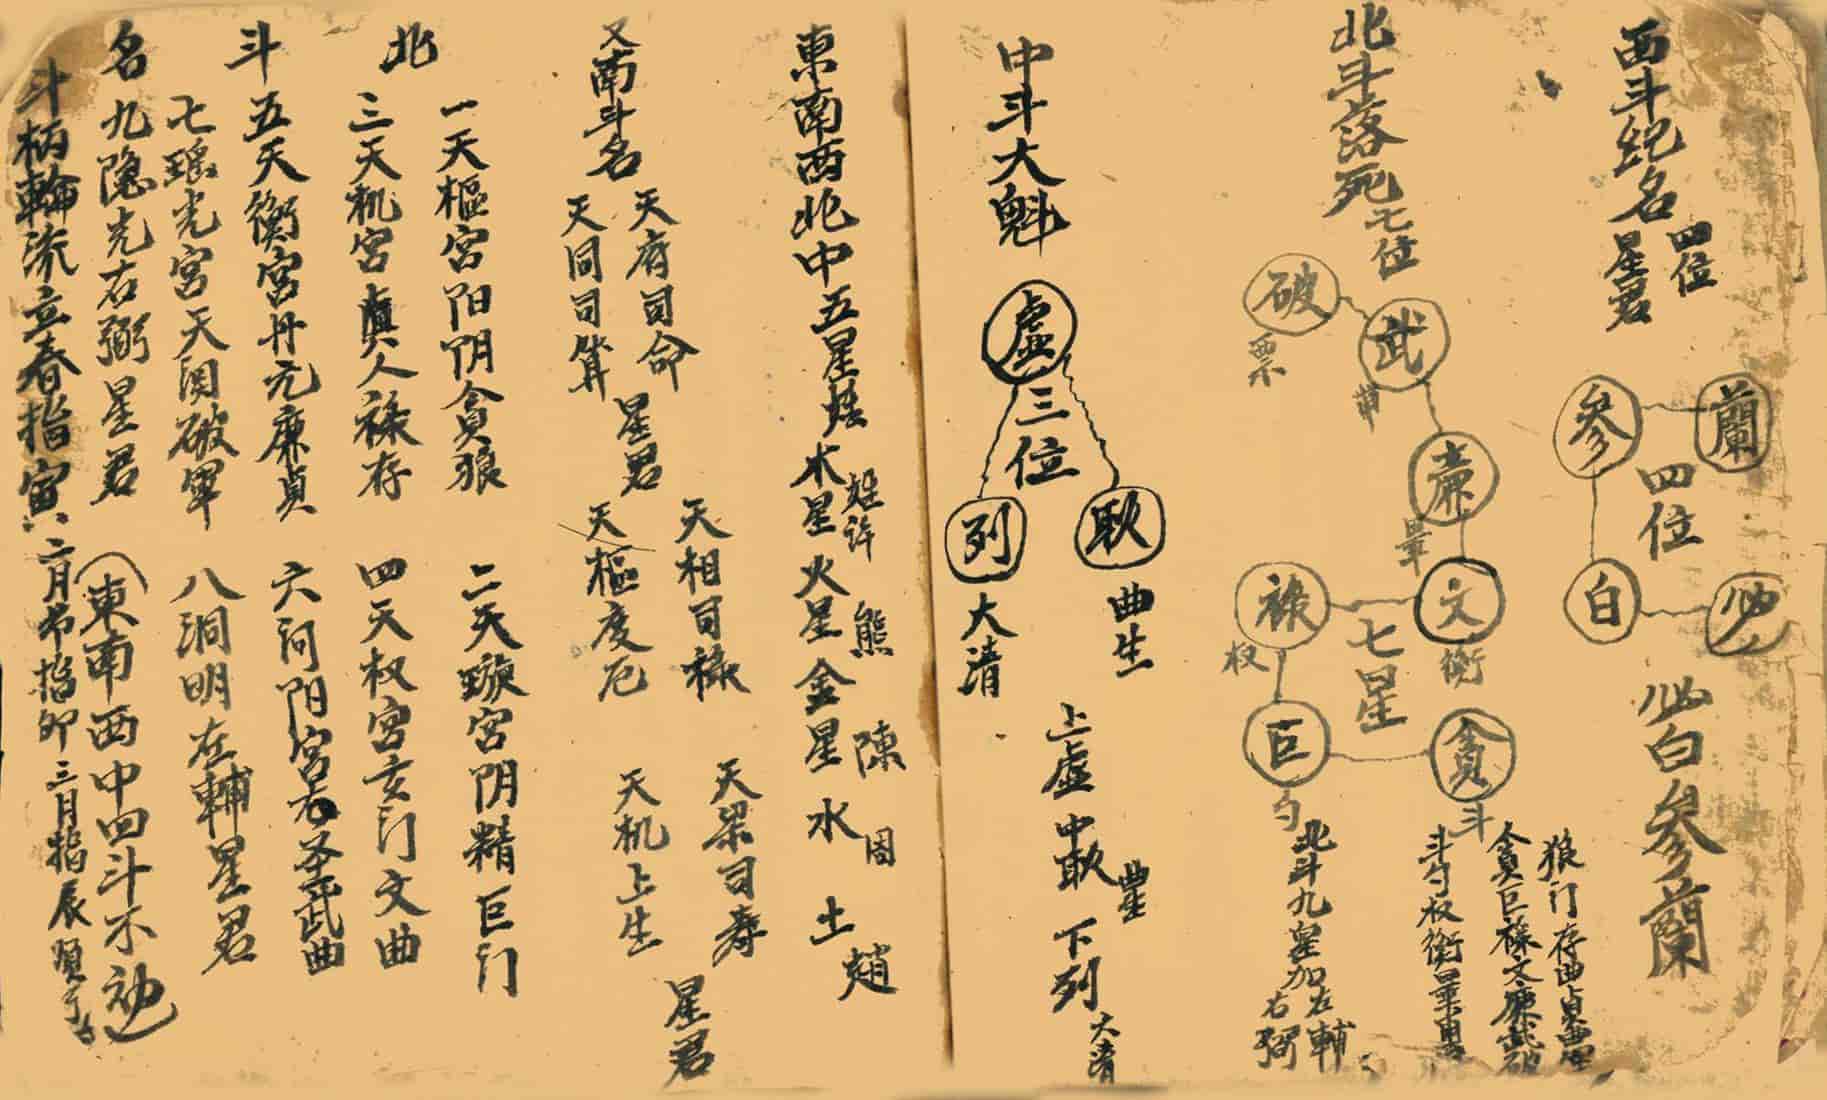 西斗纪名
四位
星君
參
蘭
四位
白
必
必白參蘭
北斗落死
七位
破
票
武
廉
文
衡
祿
权
七星
巨
勺
貪
斗
狼门存曲貞
貪巨祿文廉武破
斗勺权衡
北斗九皇加左輔
右弼
中斗大魁
虛
三位
列
耿
大清
曲生
上虛
中耿
曲星
下列
大清
東南西北中五星
木星火星金星水土
熊
陳
周
趙
又南斗名
天府司命
天同司算
星君
天相司祿
天樞度厄
天梁司寿
天机上生
星君
北斗名
一天樞宮阳阴貪狼
二天璇宮阴精巨门
三天机宮真人祿存
四天权宮玄门文曲
五天衡宮丹元廉貞
六闿阳宮
武曲
七瑶光宮天関破軍
八洞明左輔星君
九隐光右弼星君
東南西中四斗不动
斗柄輪流立春指寅
二月节指卯
三月指辰